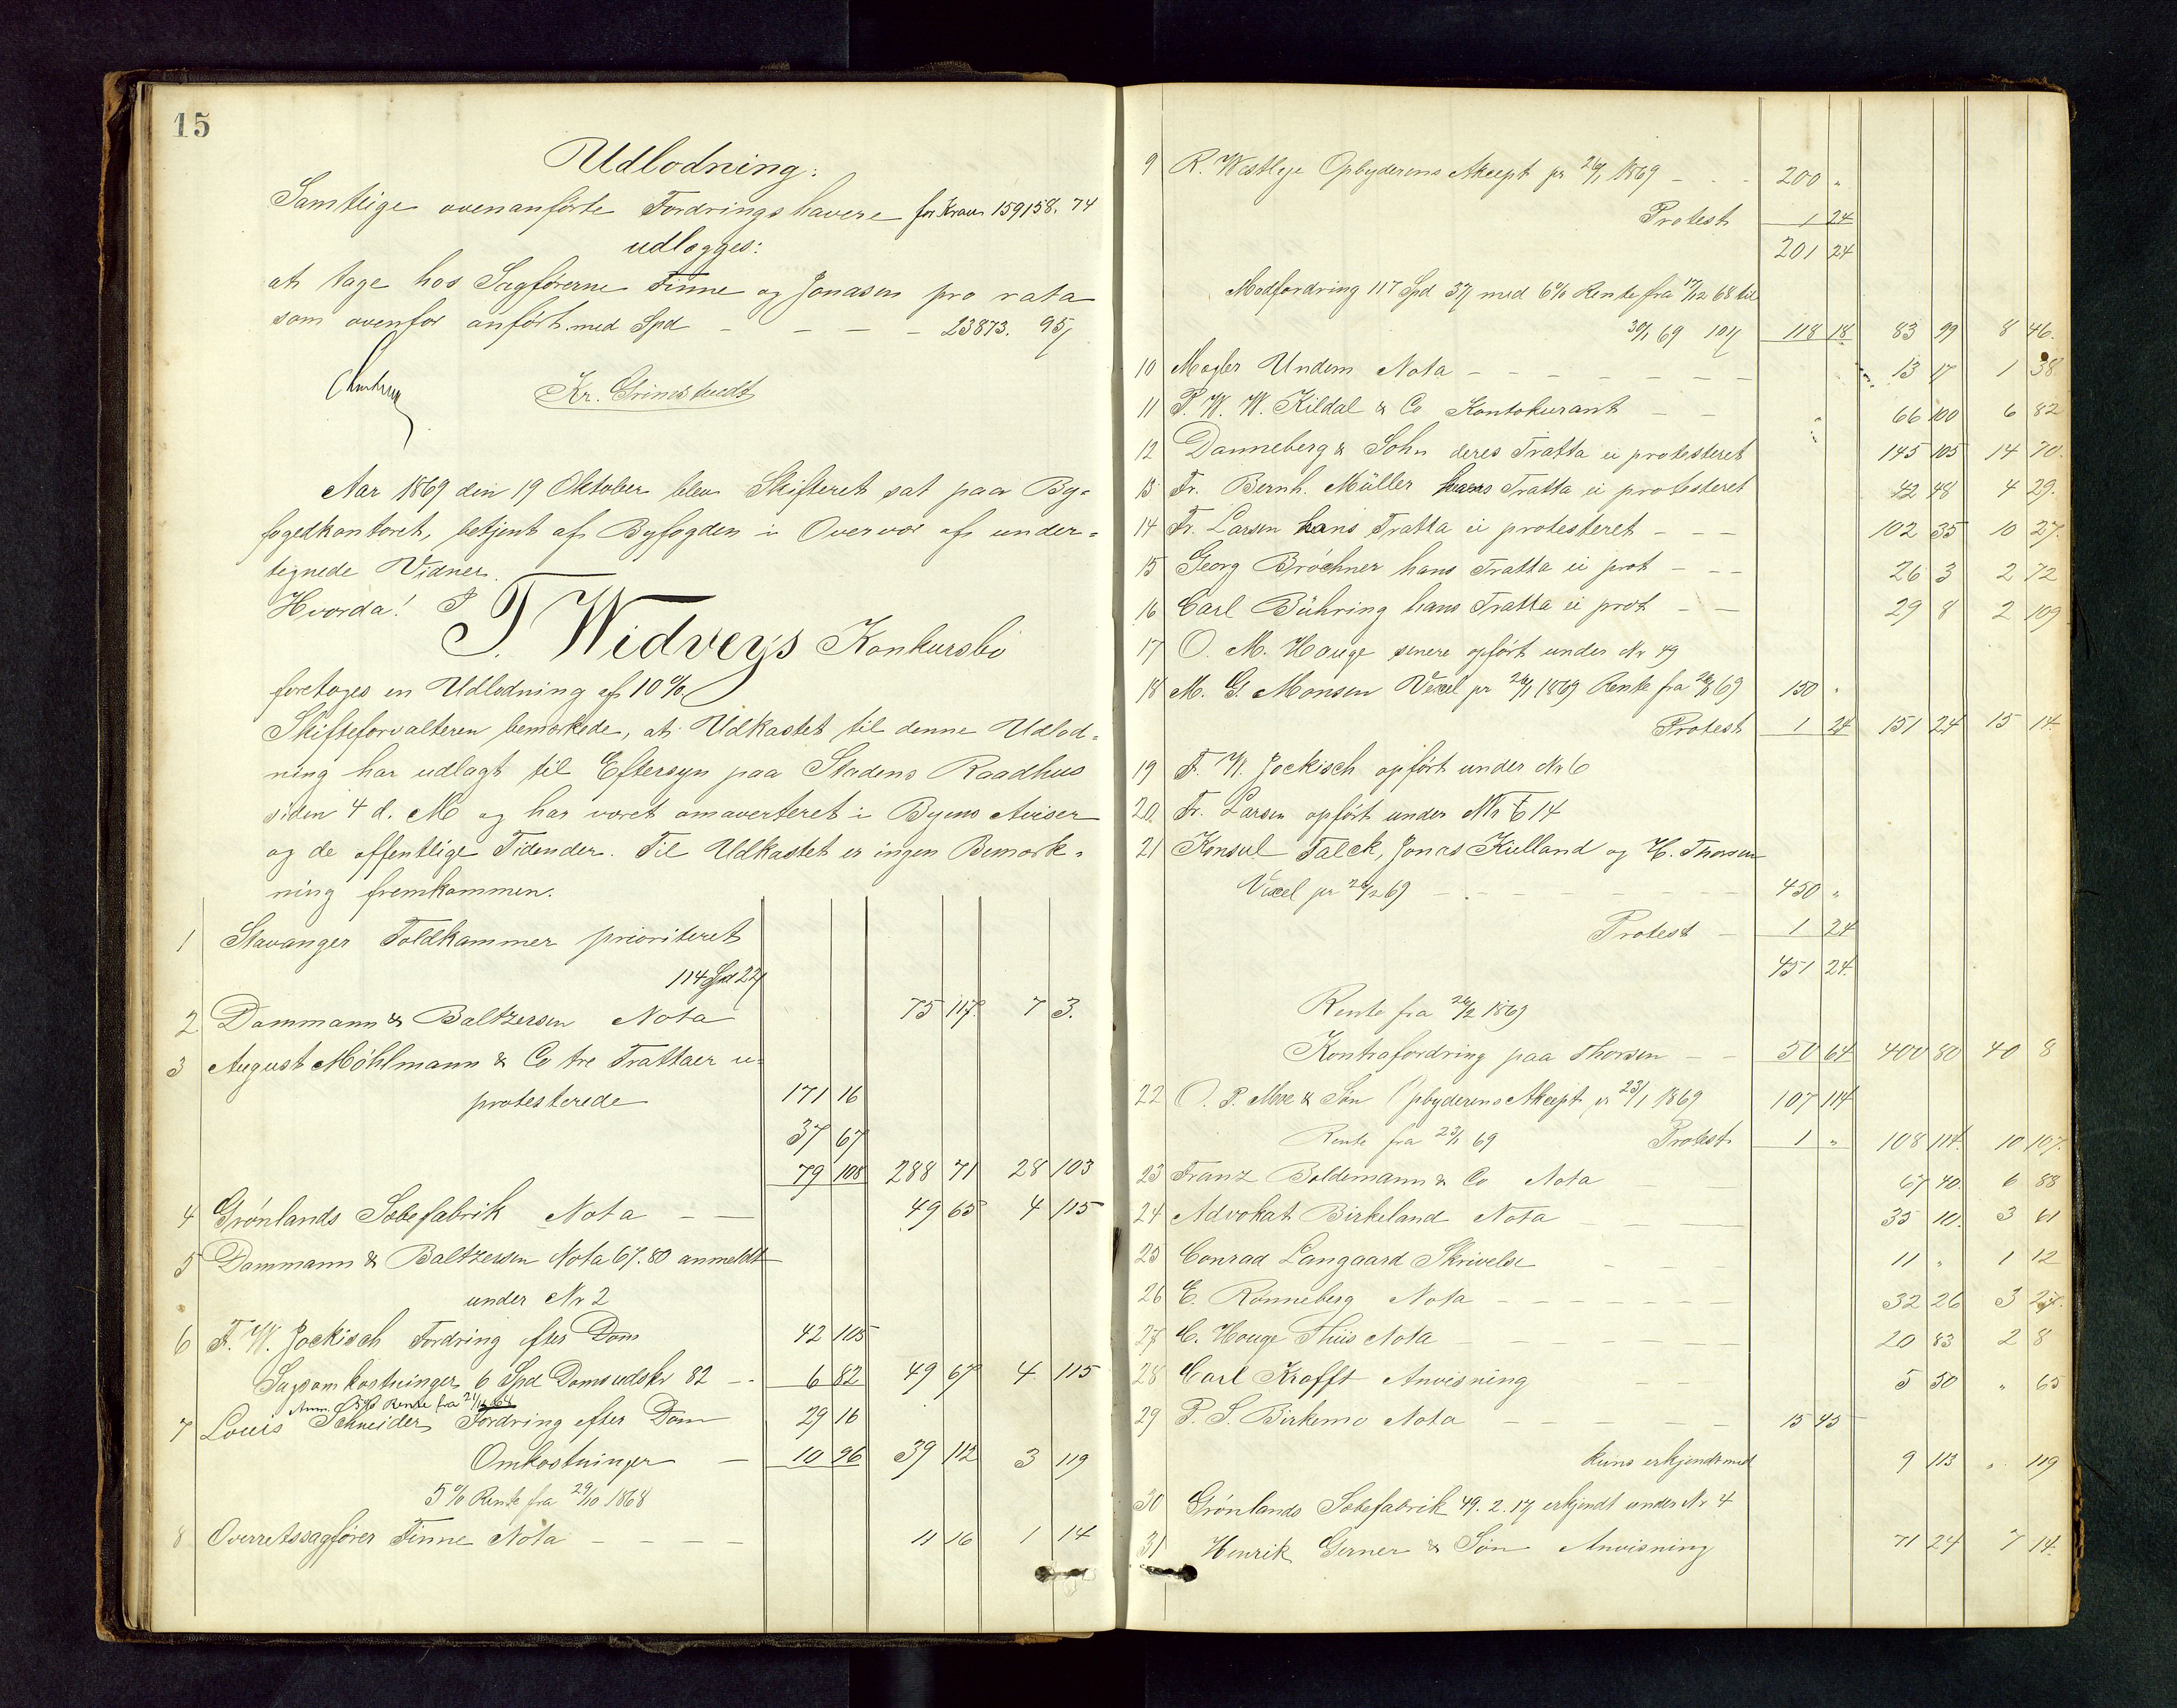 15
Udlodning:
Samtlige ovenanförte Fordringshavere for Krav 159158. 74
udlægges:
at tage hos Sagförerne Finne og Jonassen pro rata
som ovenfor anfört med Spd - - - - 23873. 95
Kr. Grimstvedt
Aar 1869 den 19 Oktober blev Skifteret sat paa By-
fogedkontoret, betjent af Byfogden i Overvær af under-
tegnede Vidner.
Hvorda! I
T. Widveys Konkursbo
foretoges en Udlodning af 10%
Skifteforvalteren bemærkede, at Udkastet til denne Udlod-
ning har udlagt til Eftersyn paa Stadens Raadhus
siden 4 d. M og har været omaverteret i Byens Aviser
og de offentlige Tidender. Til Udkastet er ingen Bemærk-
ning fremkommen.
1 Stavanger Toldkammer prioriteret
114 Spd 22
2 Dammann & Baltzersen Nota 75 117 7 3.
3 August Möhlmann & Co tre Trattaer u-
protesterede 171 16
37 67
79 108 288 71 28 103
4 Grönlands Sæbefabrik Nota - - 49 65 4 115
5 Dammann & Baltzersen Nota 67.80 anmeldt
under Nr 2
6 F. W. Jockisch Fordring efter Dom 42 105
Sagsomkostninger 6 Spd Domsudskr 82 - - 6 82 49 67 4 115
7 Louis Schneider Fordring efter Dom 29 16
Omkostninger - 10 96 39 112 3 119
5% Rente fra 29/10 1868
8 Overretssagförer Finne Nota - - - - 11 16 1 14
9 R. Westlye Opbyderens Akcept pr 26/1 1869 - - - 200 "
Protest 1 24
201 24
Modfordring 117 Spd 37 med 6% Rente fra 17/12 68 til
30/1 69 101 118 18 83 99 8 46.
10 Mægler Undem Nota - - - - - - - 13 17 1 38
11 P. W. W. Kildal & Co Kontokurant - - 66 100 6 82
12 Danneberg & Sohn deres Tratta ei protesteret 145 105 14 70.
13 Fr. Bernh. Müller hans Tratta ei protesteret 42 48 4 29.
14 Fr. Larsen hans Tratta ei protesteret - - - 102 35 10 27.
15 Georg Bröchner hans Tratta ei prot - - - 26 3 2 72
16 Carl Bühring hans Tratta ei prot - - 29 8 2 109
17 O. M. Hauge senere opfört under Nr 49
18 M. G. Monsen Vexel pr 26/1 1869 Rente fra 26/1 69 150 "
Protest 1 24 151 24 15 14.
19 F. W. Jockisch opfört under Nr 6
20. Fr. Larsen opfört under Nr 6 14
21 Konsul Falck, Jonas Kielland og H. Thorsen
Vexel pr 26/2 69 - - - - - - - 450 "
Protest - 1 24
451 24.
Rente fra 26/2 1869
Kontrafordring paa Thorsen - - 50 64 400 80 40 8
22 O. P. Moe & Sön Opbyderens Akcept pr 23/1 1869 107 114
Rente fra 23/1 69 Protest 1 " 108 114. 10 107.
23 Franz Boldemann & Co Nota - - 67 40 6 88
24 Advokat Birkeland Nota - - - 35 10. 3 61
25 Conrad Langaard Skrivelse - - - 11 " 1 12
26 E. Rönneberg Nota - - - - - - 32 26 3 27.
27 C. Hauge Thiis Nota - - - - - 20 83 2 8
28 Carl Krafft Anvisning - - 5 50 " 65
29 P. S. Birkemo Nota - - - - - 15 45
kuns erkjendt med 9 113 " 119
30 Grönlands Sæbefabrik 49. 2. 17 erkjendt under Nr 4
31 Henrik Gerner & Sön Anvisning 71 24 7 14.